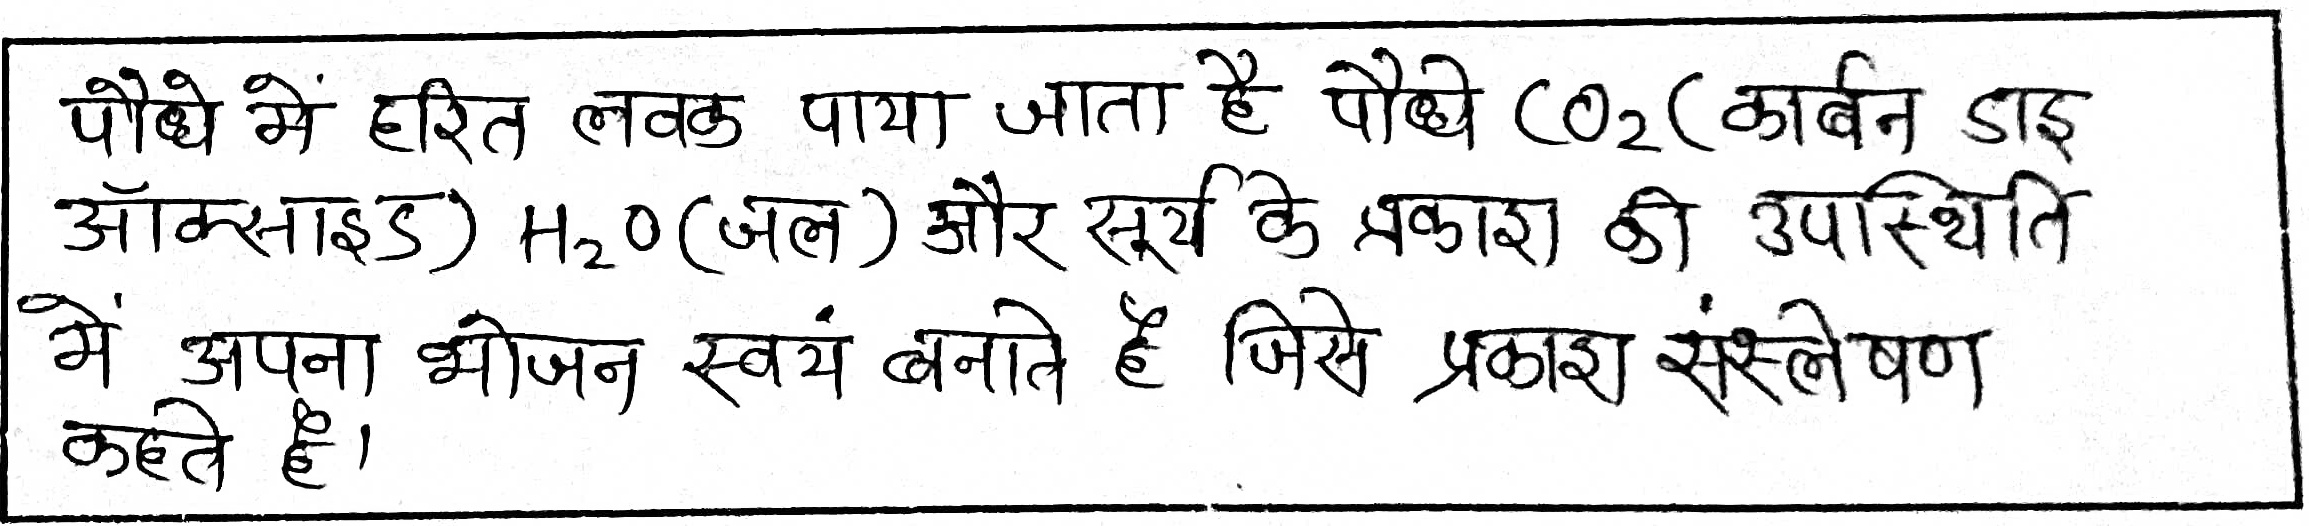 पौधे में हरित लवक पाया जाता है पौधे CO₂(कार्बन डाइ
ऑक्साइड) H₂O(जल) और सूर्य के प्रकाश की उपास्थिति
में अपना भोजन स्वयं बनाते हैं जिसे प्रकाश संस्लेषण
कहते हैं।